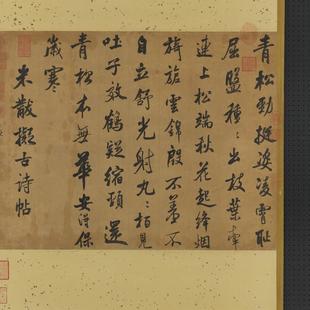 青松勁挺姿凌霄耻
屈盤種〻出枝葉牽
連上松端秋花起絳烟
旖旎雲錦殷不羞不
自立舒光射丸〻柏見
吐子效鶴疑縮頸還
青松本無華安得保
歲寒
米黻擬古詩帖